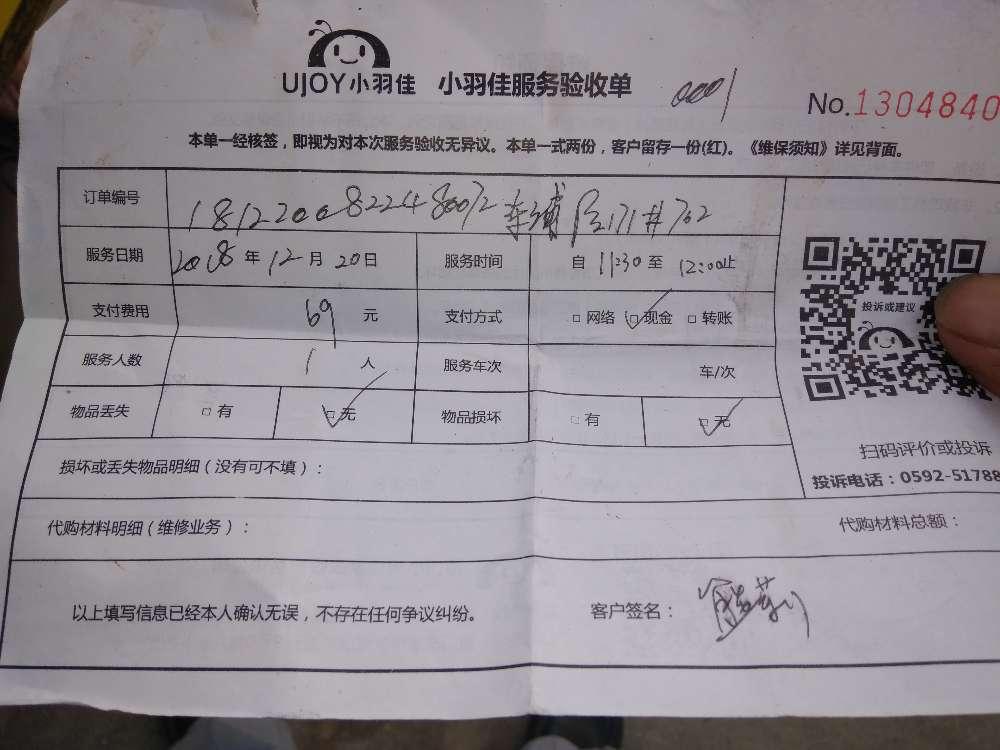 UJOY小羽佳 小羽佳服务验收单 0001
No.1304840
本单一经核签，即视为对本次服务验收无异议。本单一式两份，客户留存一份(红)。《维保须知》详见背面。
订单编号 1812200822480012 171#702
服务日期 2018年12月20日 服务时间 自 11:30 至 12:00止
投诉或建议
支付费用 69 元 支付方式 □网络 ☑现金 □转账
服务人数 1 人 服务车次 车/次
物品丢失 □有 ☑无 物品损坏 □有 ☑无
扫码评价或投诉
投诉电话：0592-51788
损坏或丢失物品明细（没有可不填）：
代购材料明细（维修业务）： 代购材料总额：
以上填写信息已经本人确认无误，不存在任何争议纠纷。 客户签名：